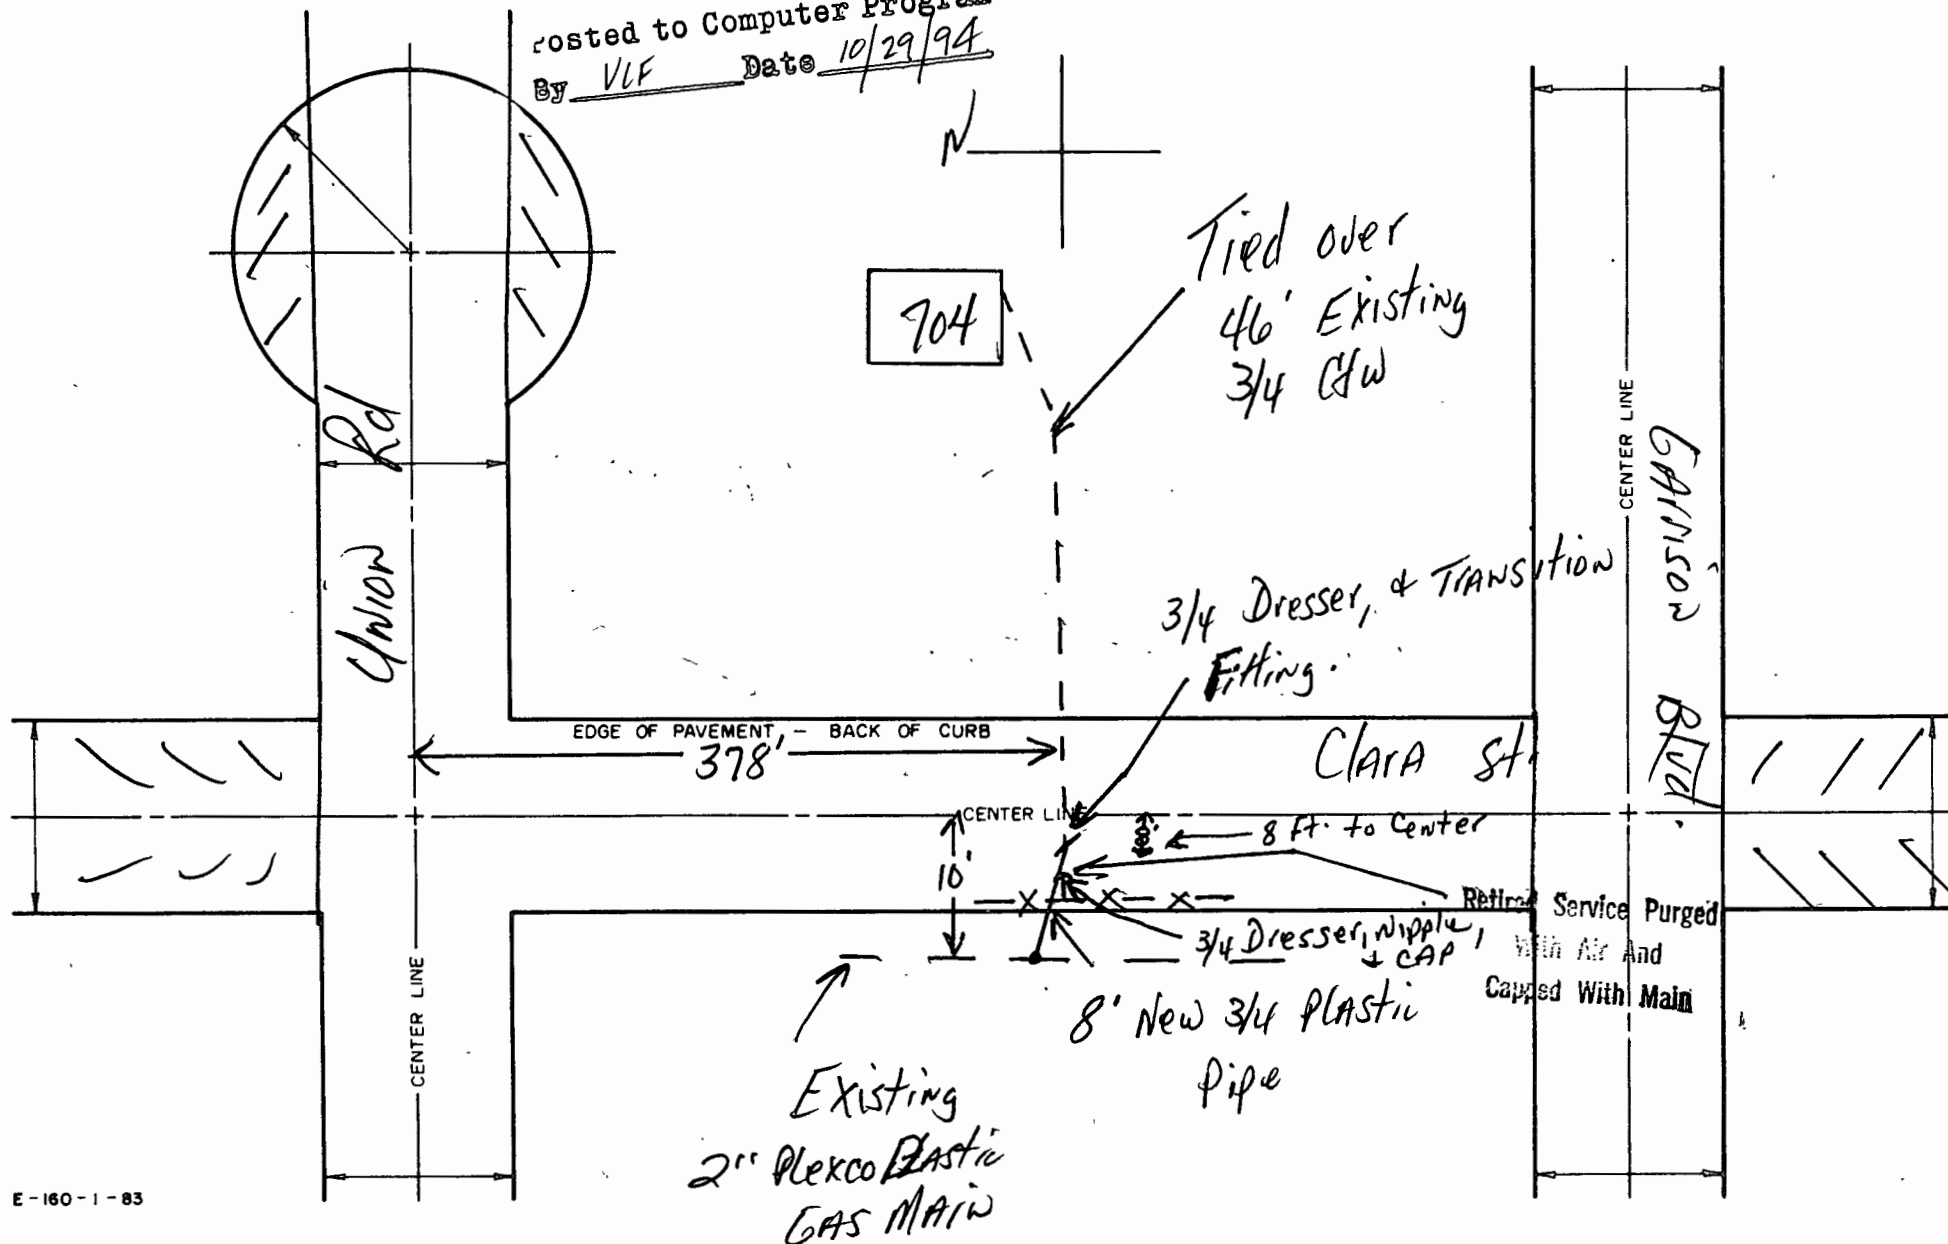 Posted to Computer Program
By VLF Date 10/29/94
N
Tied over
46' Existing
3/4
704
Union Rd
CENTER LINE
GARRISON Blvd.
3/4 Dresser, & TRANSITION
Fitting.
EDGE OF PAVEMENT, - BACK OF CURB
378'
Clara St.
CENTER LINE
8'
8 Ft. to Center
10'
Retired Service Purged
With Air And
Capped With Main
3/4 Dresser, Nipple,
+ CAP
CENTER LINE
8' New 3/4 Plastic
Pipe
Existing
2" Plexco Plastic
GAS MAIN
E-160-1-83